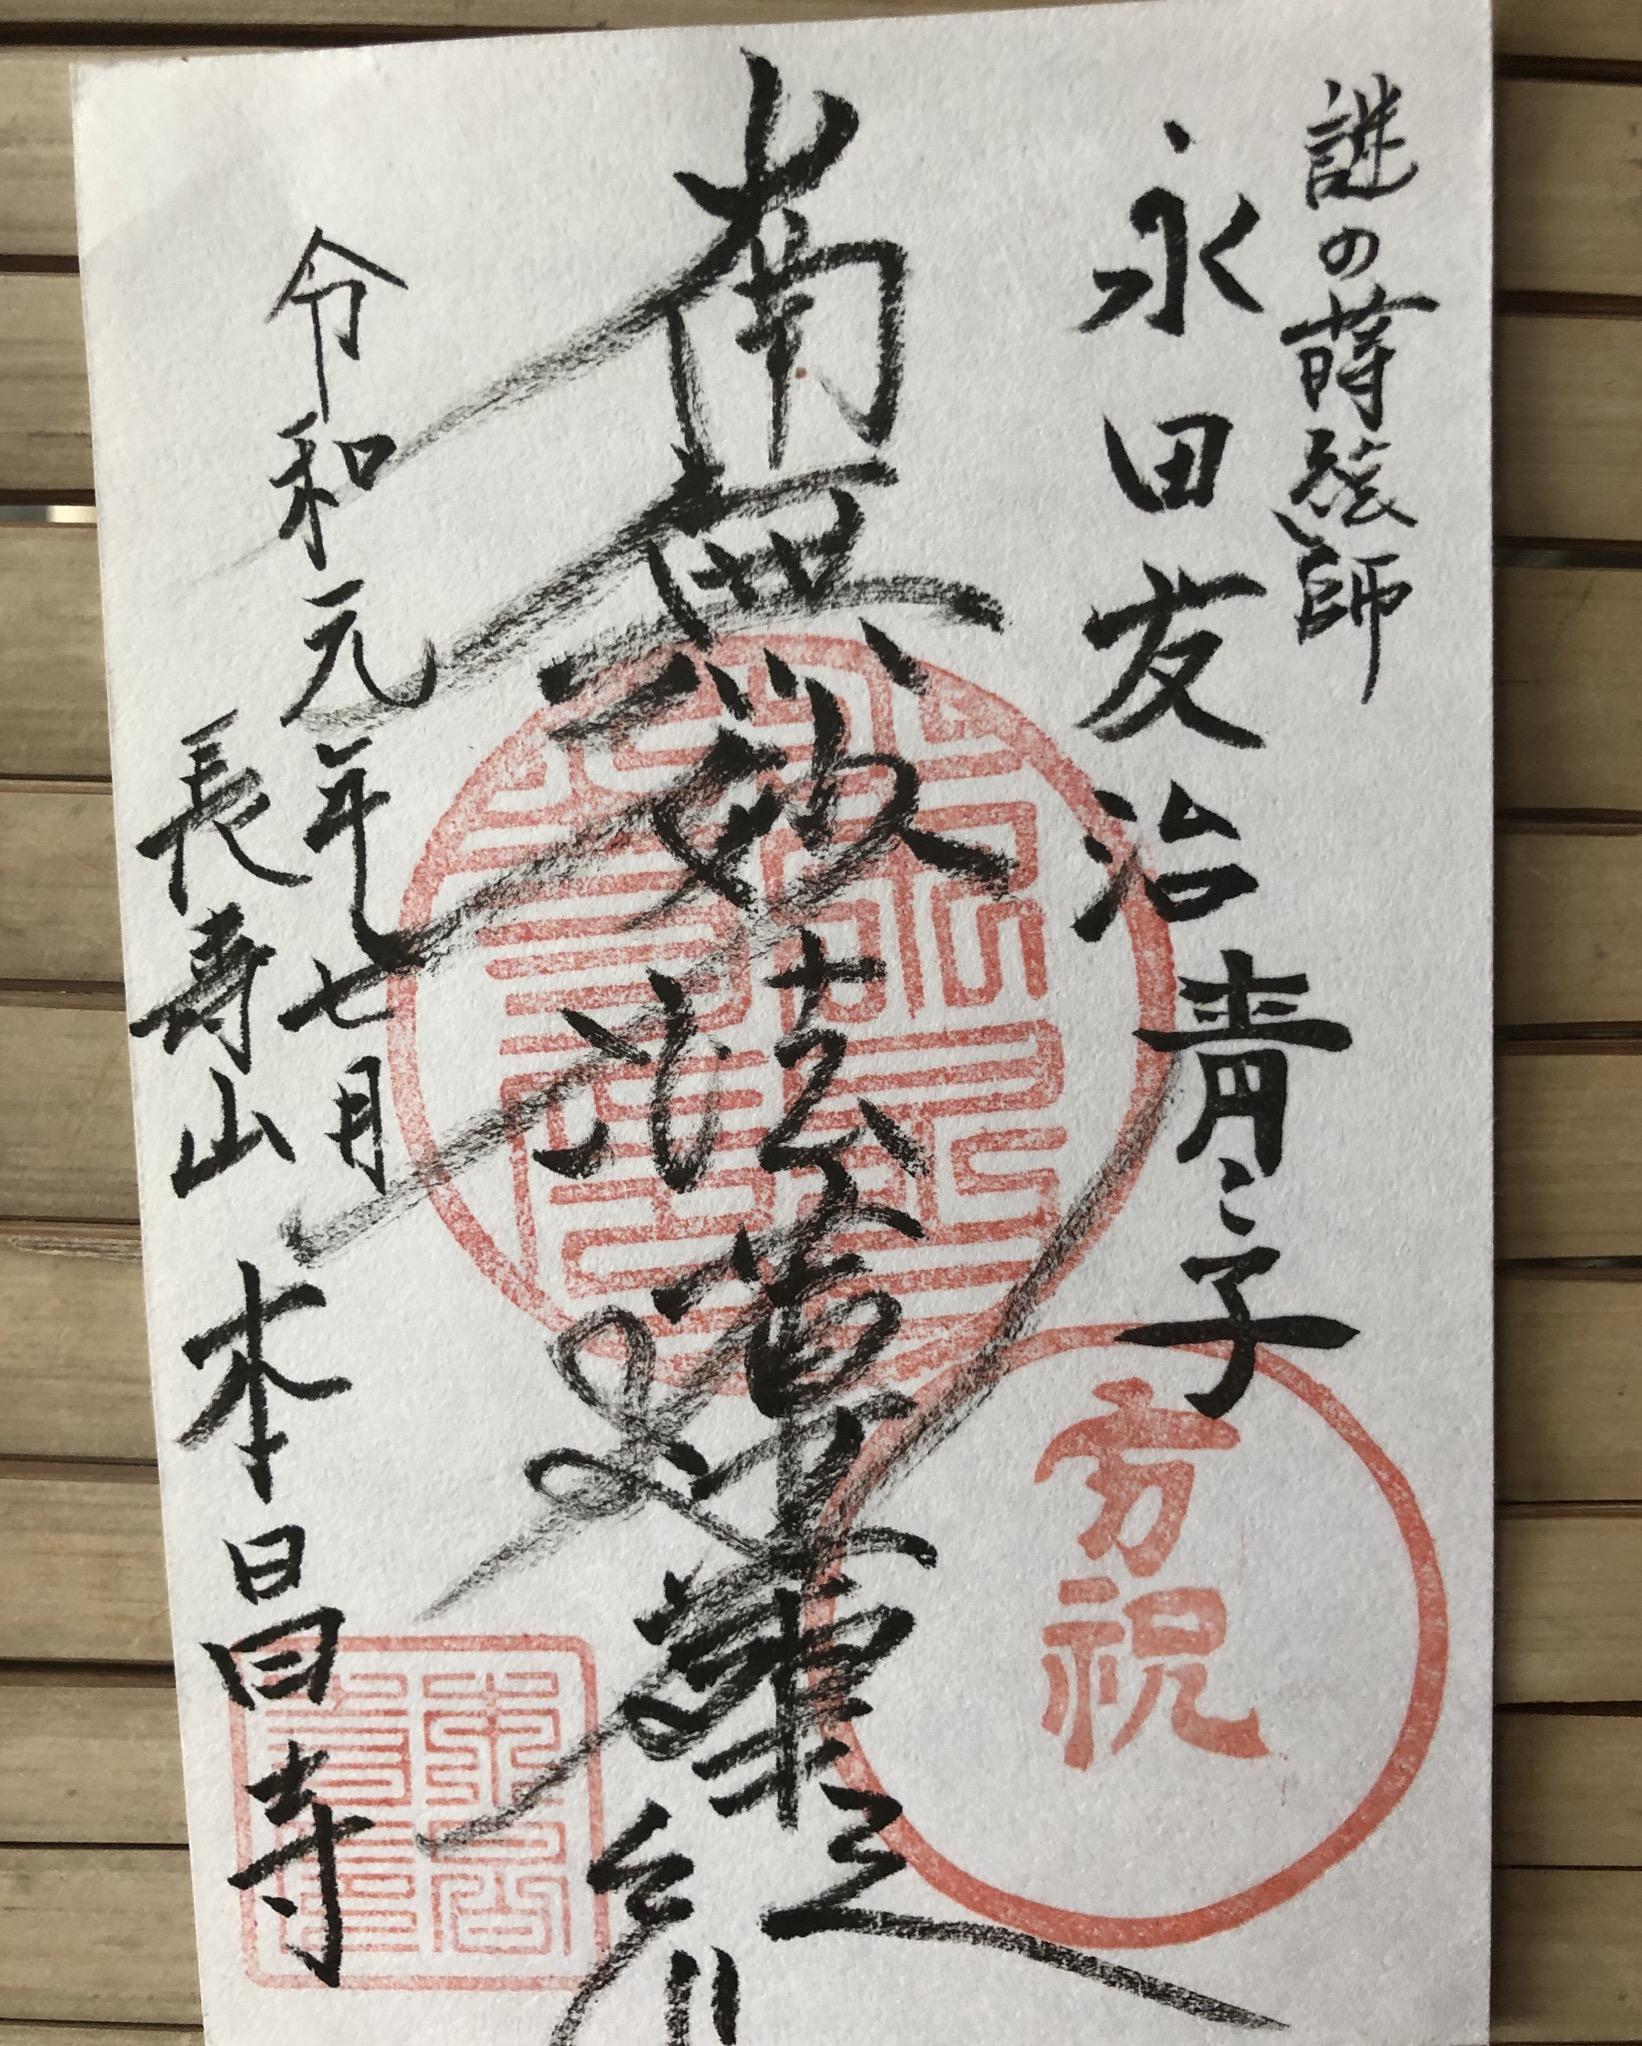 謎の蒔絵師
永田友治青々子
南無妙法蓮華経
令和元年七月
長寿山
本昌寺
方祝